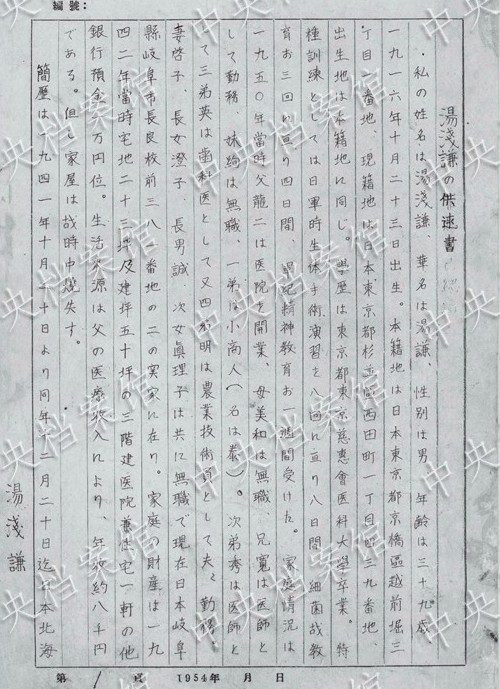 編號：
湯淺謙の供述書
・私の姓名は湯淺謙、華名は湯謙、性別は男、年齢は三十九歳
一九一六年十月二十三日出生。本籍地は日本東京都京橋區越前堀三
丁目一番地、現籍地は日本東京都杉並區西田町一丁目四三九番地、
出生地は本籍地に同じ。學歴は東京都東京慈惠會医科大學卒業。特
種訓練としては日軍時生体手術演習を八回に亘り八日間、細菌战教
育お三回に亘り四日間、軍紀精神教育お一週間受けた。家庭情況は
一九五〇年當時父龍二は医院を開業、母美和は無職、兄寛は医師と
して勤務、妹絢は無職、一弟は小商人（名は泰）。次弟秀は医師と
して三弟英は歯科医として又四弟明は農業技術員として夫々勤務
妻啓子、長女澄子、長男誠、次女眞理子は共に無職で現在日本岐阜
縣岐阜市長良枚前三八一番地の二の実家に在り。家庭の財産は一九
四二年當時宅地二十三坪及建坪五十坪の三階建医院兼住宅一軒の他
銀行預金八万円位。生活來源は父の医療收入により、年收約八千円
である。但し家屋は战時中燒失す。
簡歴は一九四一年十月二十日より同年十二月二十日迄日本北海
湯淺謙
第 1 頁 1954年 月 日
中央档案馆